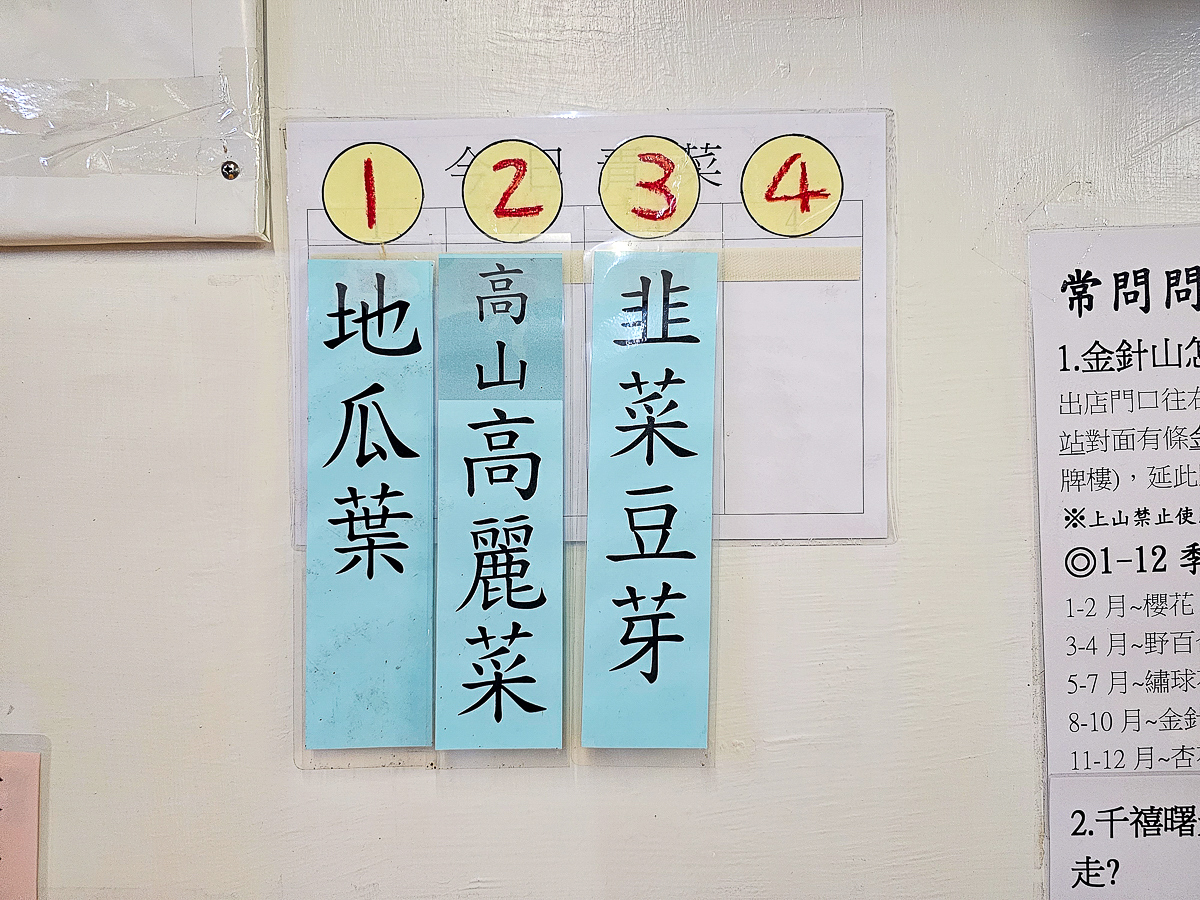 今日青菜
1
2
3
4
地瓜葉
高山高麗菜
韭菜豆芽
常問問
1.金針山怎
出店門口往右
站對面有條金
牌樓)，延此
※上山禁止使
◎1-12 季
1-2 月~櫻花
3-4 月~野百合
5-7 月~繡球花
8-10 月~金針
11-12 月~杏花
2.千禧曙光
走?